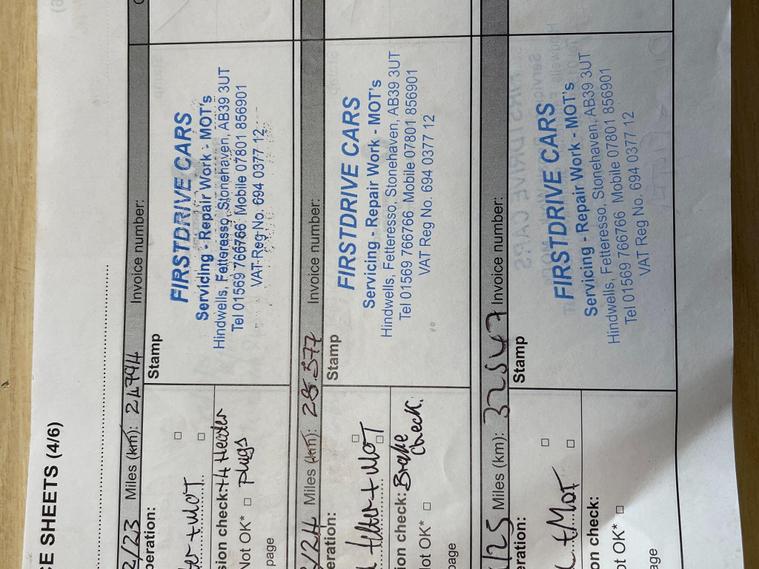 CE SHEETS (4/6)
2/23 Miles (km): 24794 Invoice number:
peration:
Stamp
+ MOT
sion check: +4 Heater
Not OK* plugs
page
FIRSTDRIVE CARS
Servicing - Repair Work - MOT's
Hindwells, Fetteresso, Stonehaven, AB39 3UT
Tel 01569 766766 Mobile 07801 856901
VAT Reg No. 694 0377 12
/24 Miles (km): 28377 Invoice number:
eration:
Stamp
filter + MOT
sion check: Brake
Not OK* Check.
page
FIRSTDRIVE CARS
Servicing - Repair Work - MOT's
Hindwells, Fetteresso, Stonehaven, AB39 3UT
Tel 01569 766766 Mobile 07801 856901
VAT Reg No. 694 0377 12
/25 Miles (km): 32547 Invoice number:
eration:
Stamp
+ MOT
on check:
ot OK*
age
FIRSTDRIVE CARS
Servicing - Repair Work - MOT's
Hindwells, Fetteresso, Stonehaven, AB39 3UT
Tel 01569 766766 Mobile 07801 856901
VAT Reg No. 694 0377 12